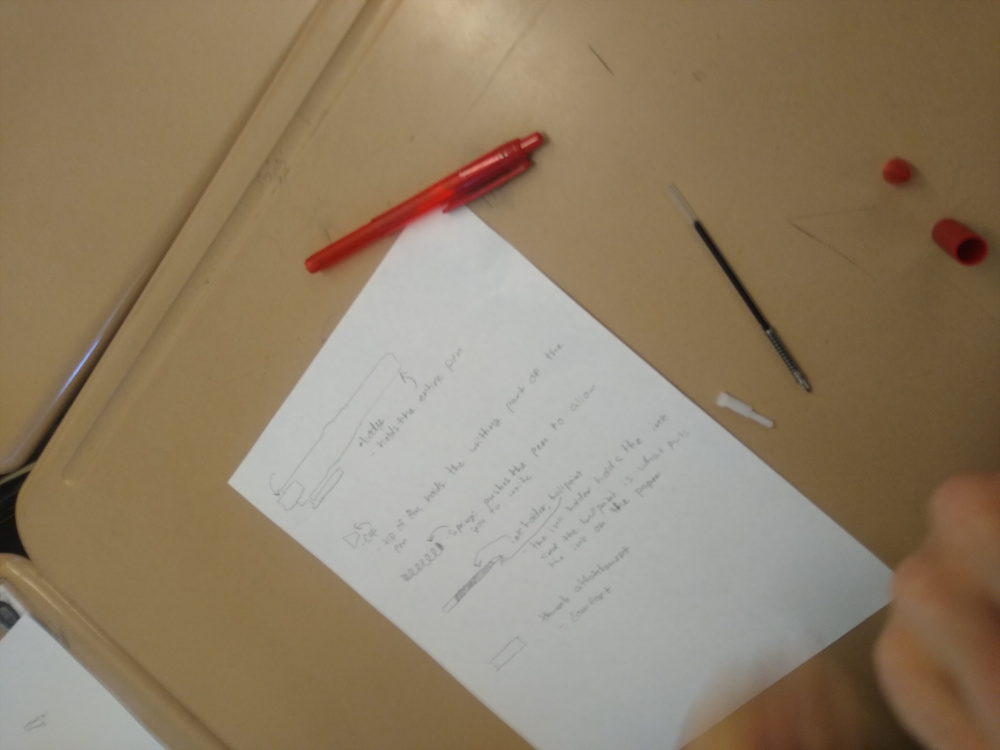 holds the entire pen
- tip of the holds the writting part of the
pen
Spring: pushes the pen to allow
you to write
ink holder, ballpoint
- the ink holder holds the ink
and the ballpoint is what puts
the ink on the paper
thumb attatchment
- Comfort